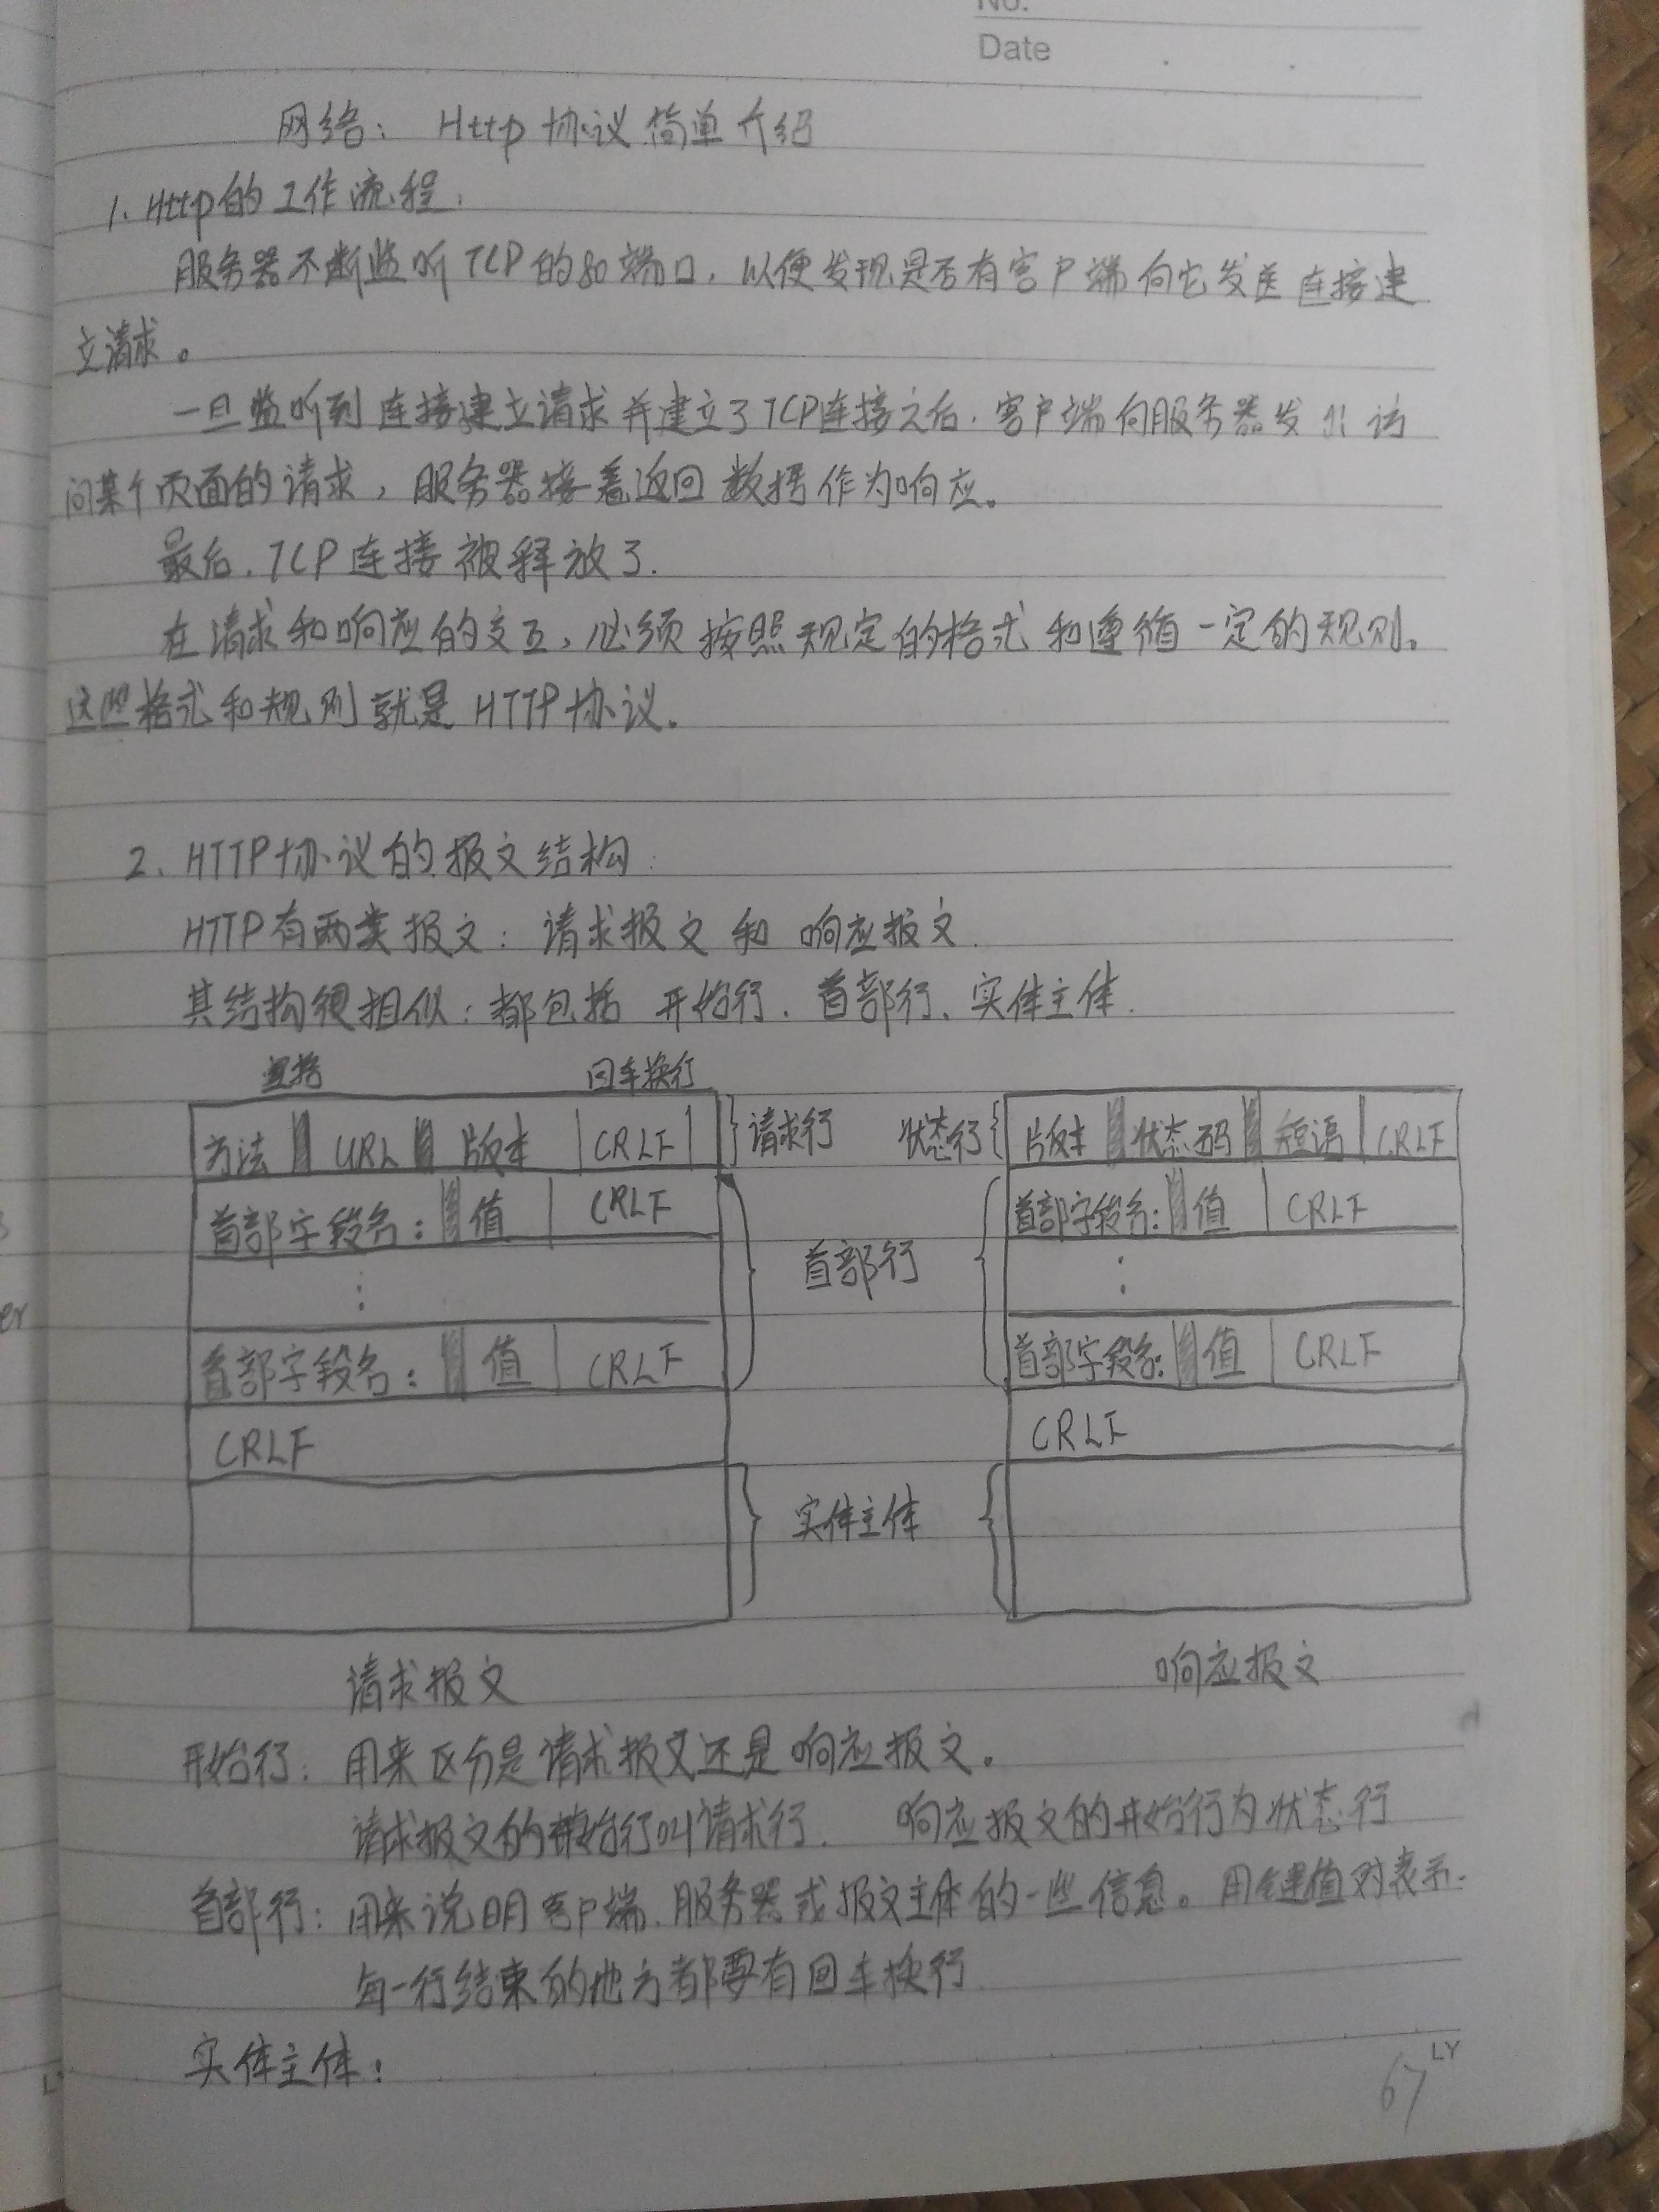 No.
Date
网络： Http 协议简单介绍
1. Http的工作流程.
服务器不断监听TCP的80端口，以便发现是否有客户端向它发送连接建
立请求。
一旦监听到连接建立请求并建立了TCP连接之后.客户端向服务器发出访
问某个页面的请求，服务器接着返回数据作为响应。
最后.TCP连接被释放了.
在请求和响应的交互，必须按照规定的格式和遵循一定的规则。
这些格式和规则就是HTTP协议。
2. HTTP协议的报文结构：
HTTP有两类报文：请求报文和响应报文.
其结构很相似：都包括 开始行、首部行、实体主体.
回车换行
方法 URL 版本 CRLF 请求行 状态行 版本 状态码 短语 CRLF
首部字段名： 值 CRLF 首部字段名： 值 CRLF
首部行
首部字段名： 值 CRLF 首部字段名： 值 CRLF
CRLF CRLF
实体主体
请求报文 响应报文
开始行：用来区分是请求报文还是响应报文。
请求报文的开始行叫请求行. 响应报文的开始行为状态行
首部行：用来说明客户端.服务器或报文主体的一些信息。用键值对表示.
每一行结束的地方都要有回车换行
实体主体：
LY
67